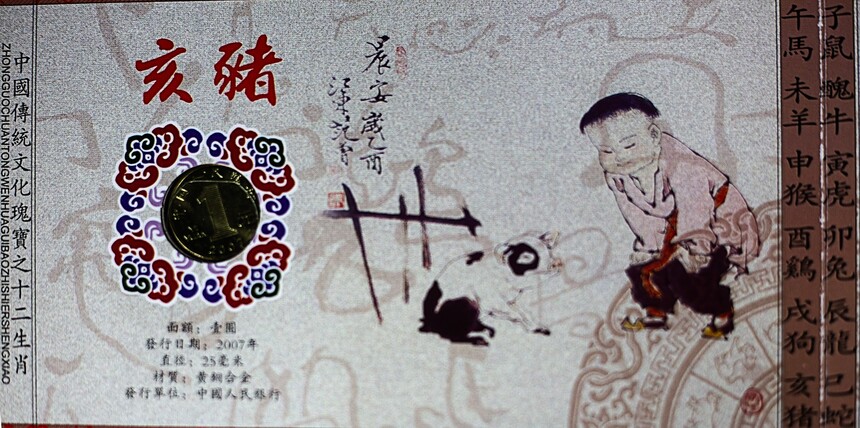 中國傳統文化瑰寶之十二生肖
ZHONGGUOCHUANTONGWENHUAGUIBAOZHISHIERSHENGXIAO
亥豬
1
面額：壹圓
發行日期：2007年
直徑：25毫米
材質：黃銅合金
發行單位：中國人民銀行
晨安歲乙酉
子鼠 醜牛 寅虎 卯兔 辰龍 巳蛇
午馬 未羊 申猴 酉鷄 戌狗 亥豬